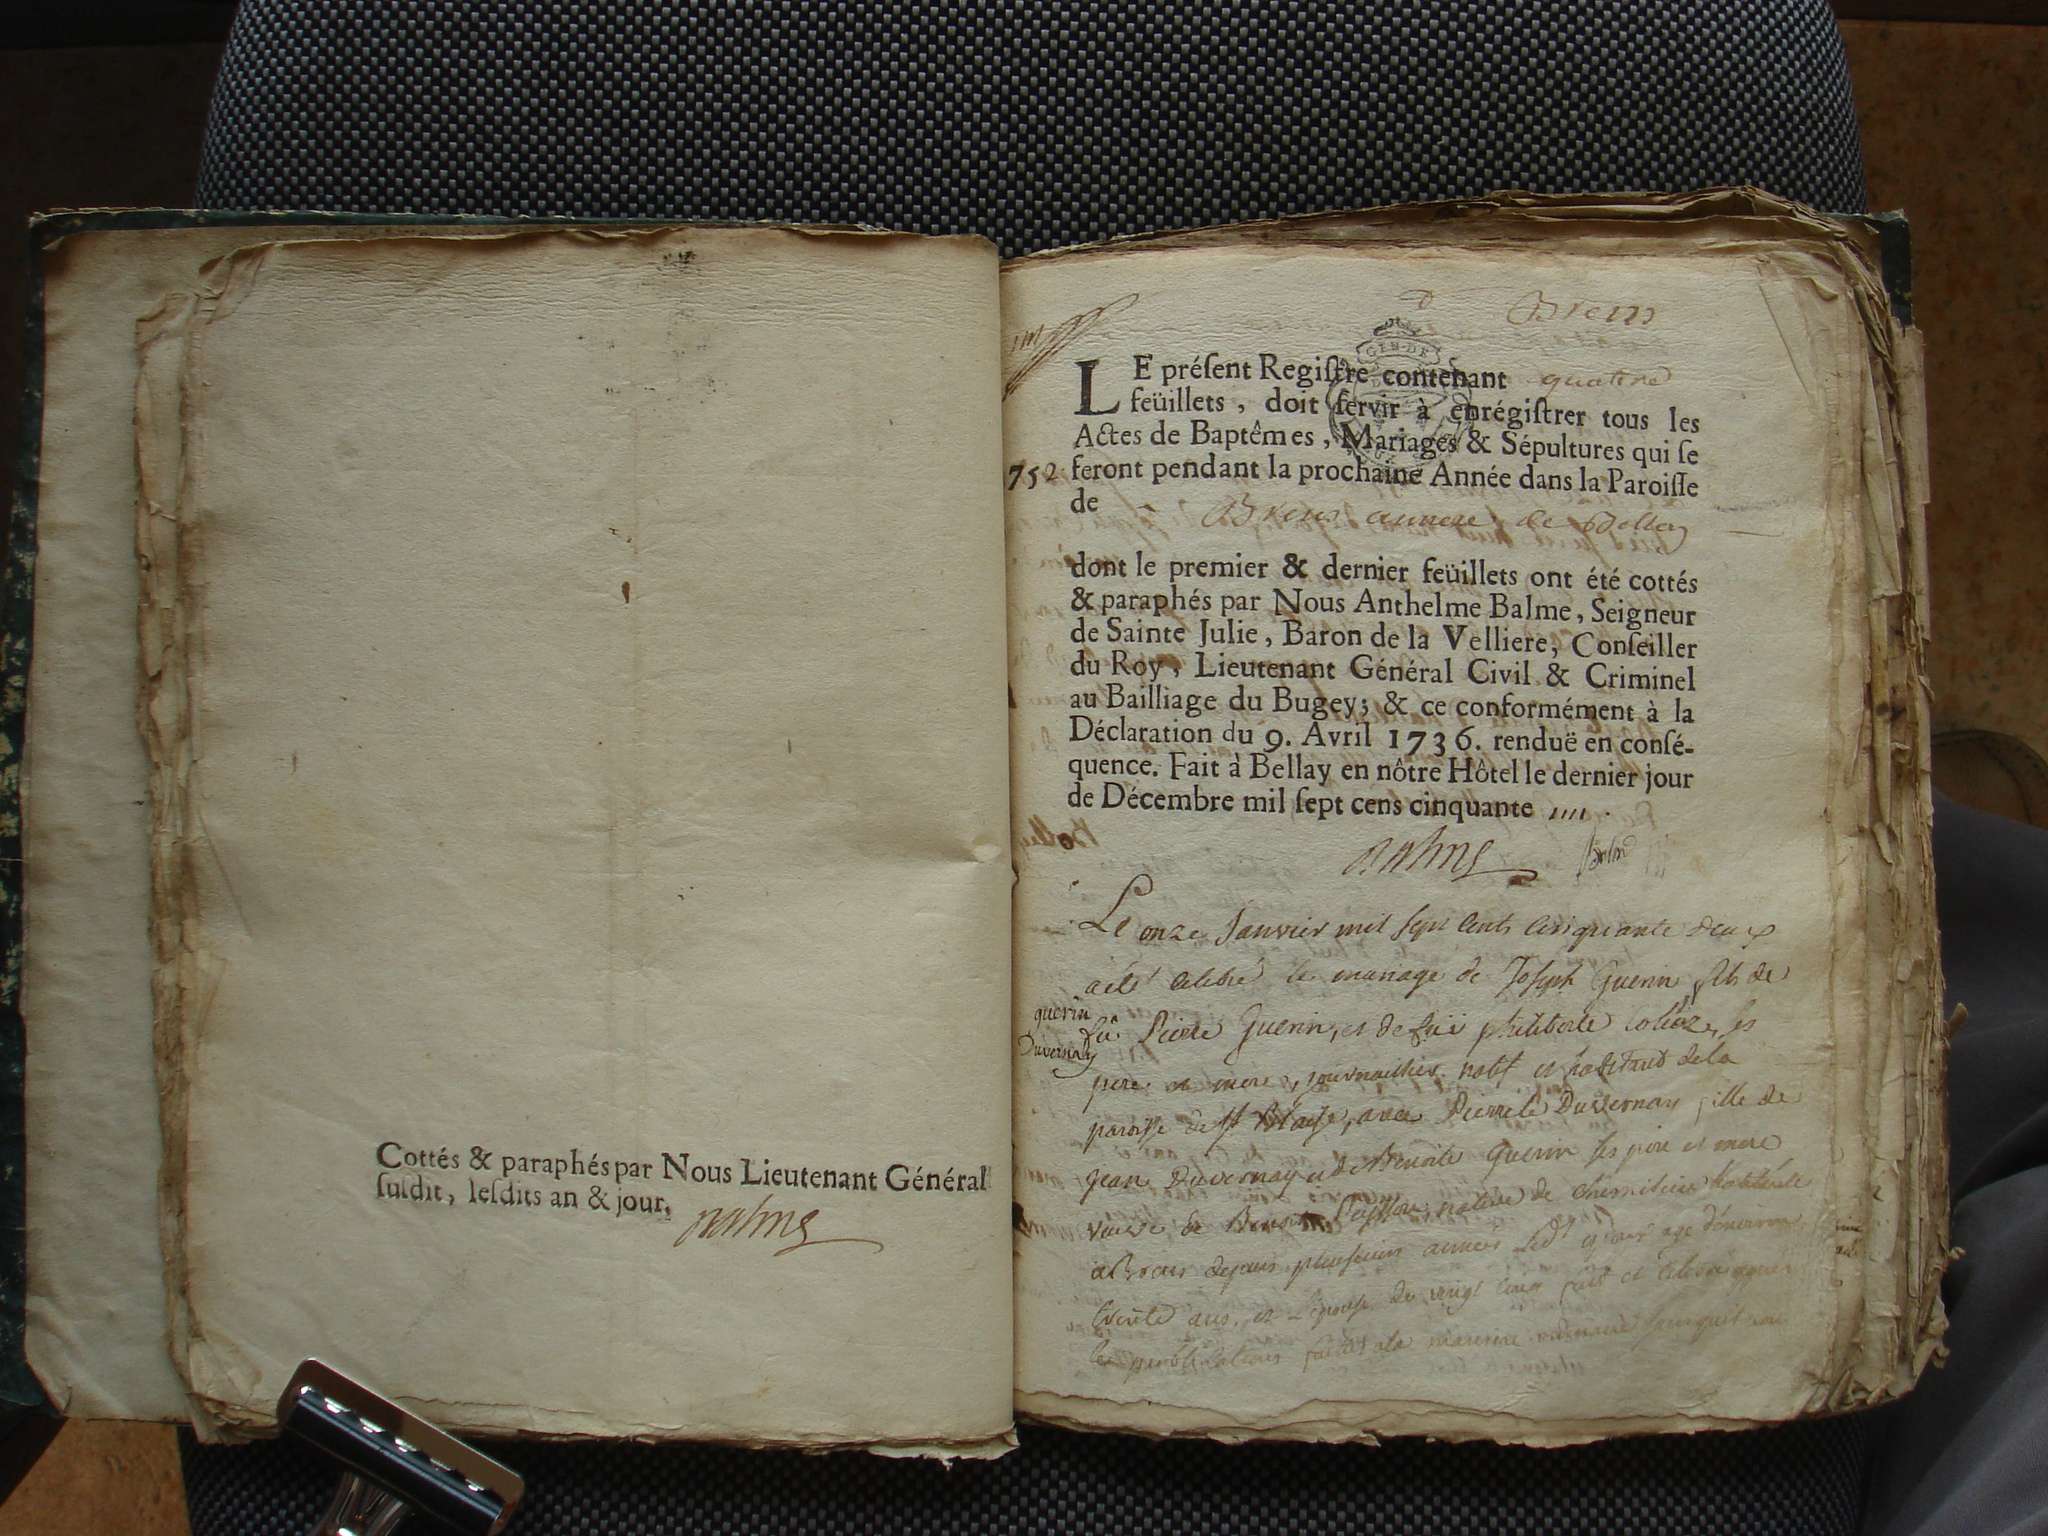 Cottés & paraphés par Nous Lieutenant Général
ſuſdit, leſdits an & jour.
Balme
Brens
GEN. DE
LE préſent Regiſtre contenant quatre
feüillets, doit ſervir à enrégiſtrer tous les
Actes de Baptêmes, Mariages & Sépultures qui ſe
752 feront pendant la prochaine Année dans la Paroiſſe
de Brens annexe de Belley
dont le premier & dernier feüillets ont été cottés
& paraphés par Nous Anthelme Balme, Seigneur
de Sainte Julie, Baron de la Velliere, Conſeiller
du Roy, Lieutenant Général Civil & Criminel
au Bailliage du Bugey; & ce conformément à la
Déclaration du 9. Avril 1736. renduë en conſé-
quence. Fait à Bellay en nôtre Hôtel le dernier jour
de Décembre mil ſept cens cinquante
Balme
Le onze Janvier mil sept cents cinquante deux
a été celebré le mariage de Joseph Guerin fils de
guerin
Duvernay
fû Pierre Guerin, et de fûë philiberte
pere et mere, journaillier natif et habitant de la
paroisse de St Blaise, avec Pierrete Duvernay fille de
Jean Duvernay et de Benoite Guerin ses pere et mere
veuve de Benoit native de habitante
a Brens depuis plusieurs années Led age d'environ
trente ans, et L'epouse de vingt cinq
les publications faites a la maniere ordinaire